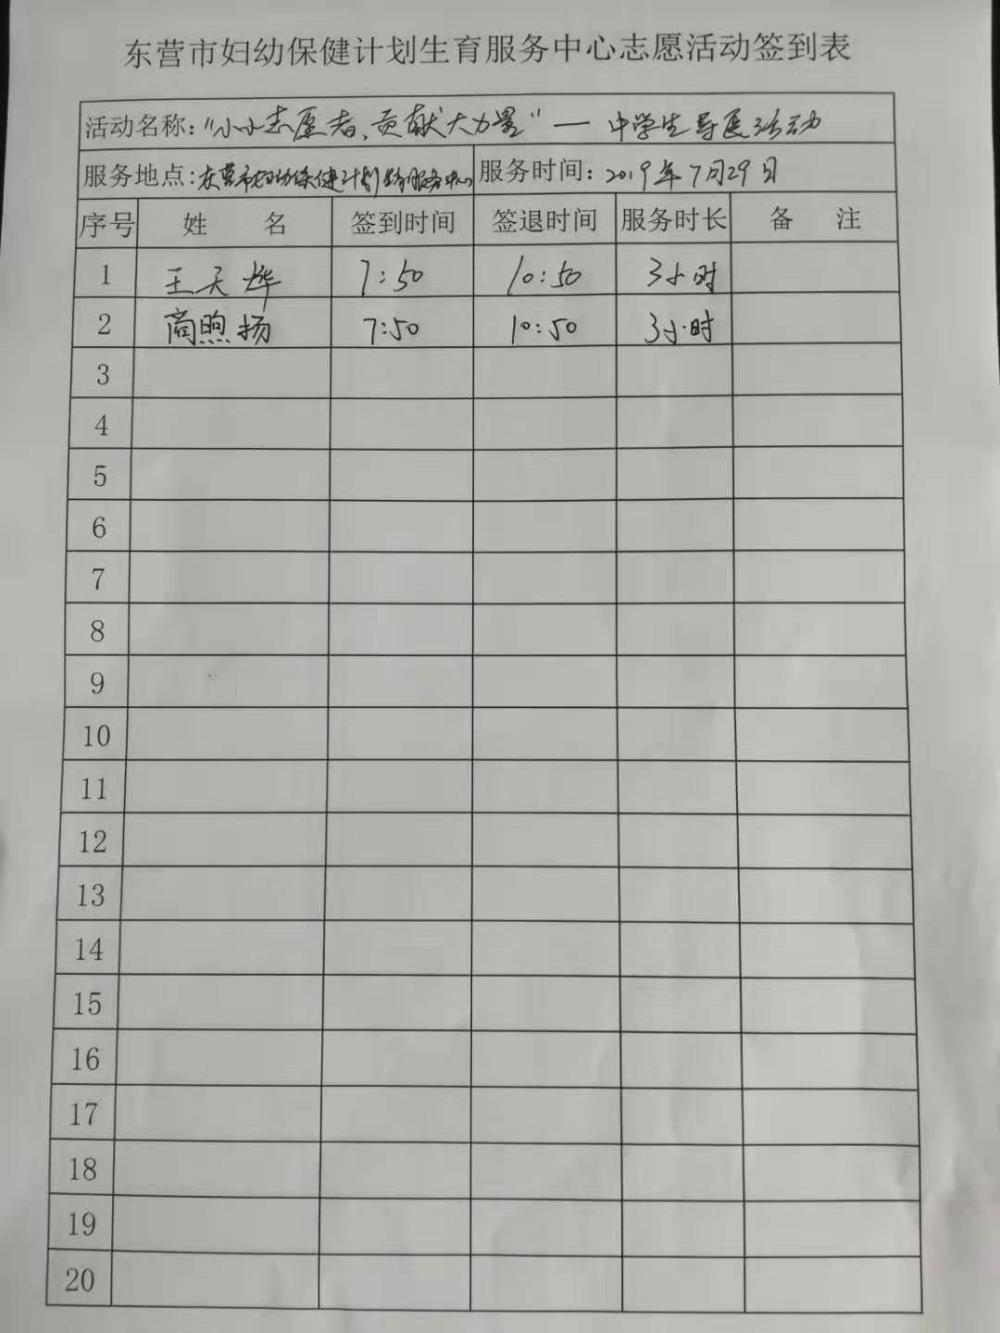 东营市妇幼保健计划生育服务中心志愿活动签到表
活动名称："小小志愿者、贡献大力量"—中学生导医活动
服务地点：东营市妇幼保健计划生育服务中心 服务时间：2019年7月29日
序号 姓 名 签到时间 签退时间 服务时长 备 注
1 王天烨 7:50 10:50 3小时
2 商煦扬 7:50 10:50 3小时
3
4
5
6
7
8
9
10
11
12
13
14
15
16
17
18
19
20